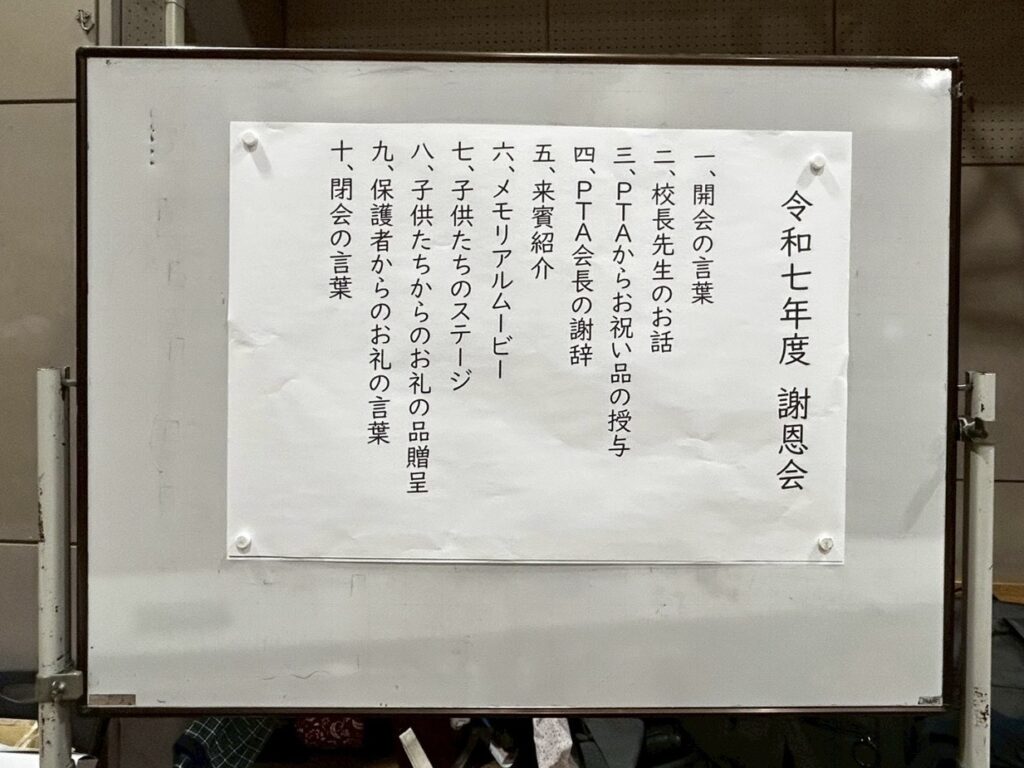 令和七年度 謝恩会
一、開会の言葉
二、校長先生のお話
三、PTAからお祝い品の授与
四、PTA会長の謝辞
五、来賓紹介
六、メモリアルムービー
七、子供たちのステージ
八、子供たちからのお礼の品贈呈
九、保護者からのお礼の言葉
十、閉会の言葉